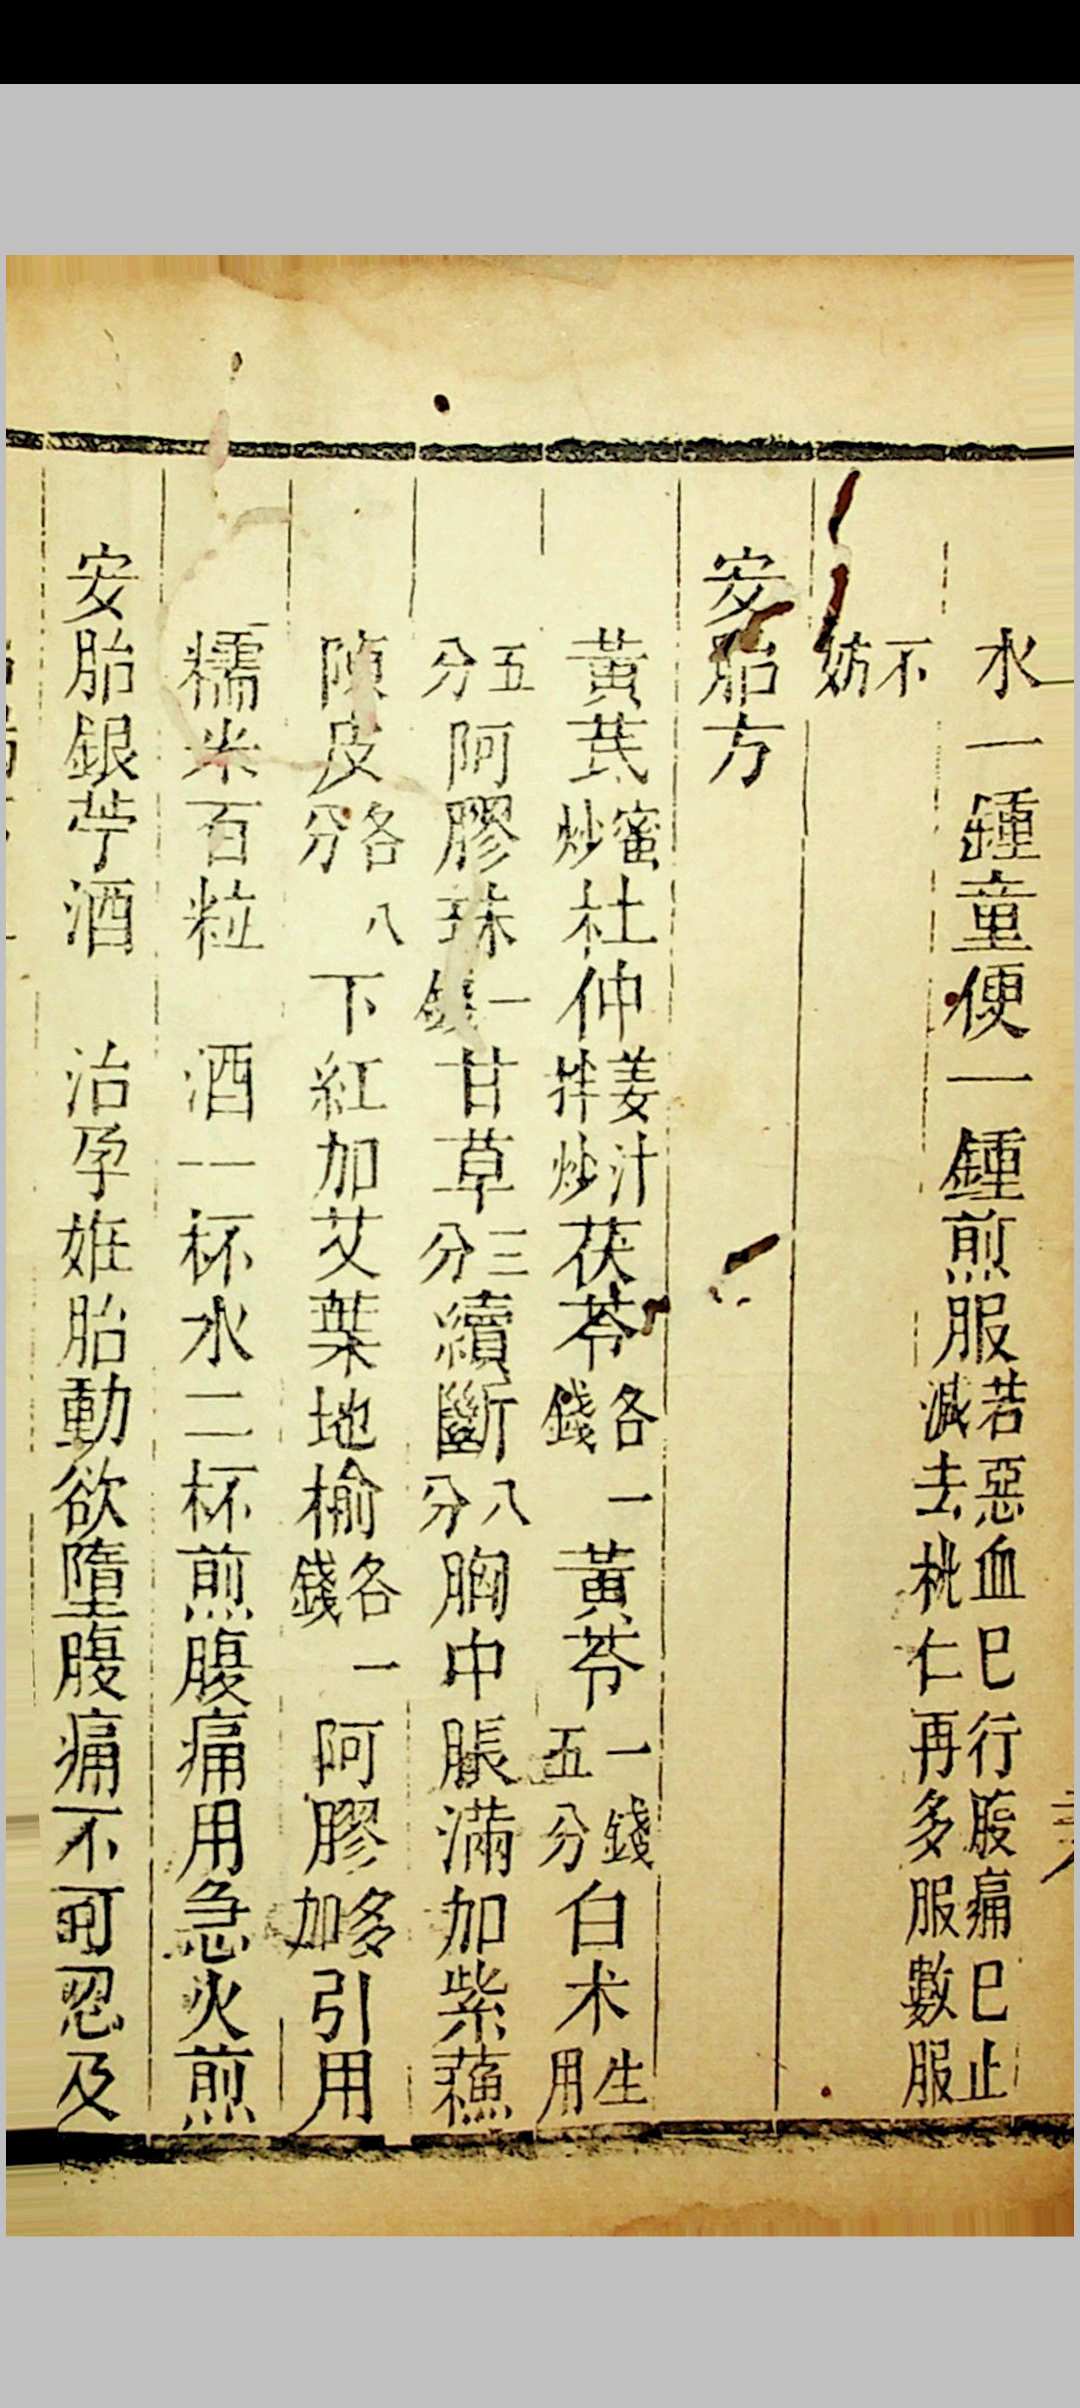 水一鍾童便一鍾煎服若惡血巳行腹痛巳止減去桃仁再多服數服
不妨
安胎方
黃芪蜜炒杜仲姜汁拌炒茯苓各一錢黃芩一錢五分白术生用
五分阿膠珠一錢甘草三分續斷八分胸中脹滿加紫蘓
陳皮各八分下紅加艾葉地榆各一錢阿膠多加引用
糯米百粒酒一杯水二杯煎腹痛用急火煎
安胎銀苧酒治孕姙胎動欲墮腹痛不可忍及